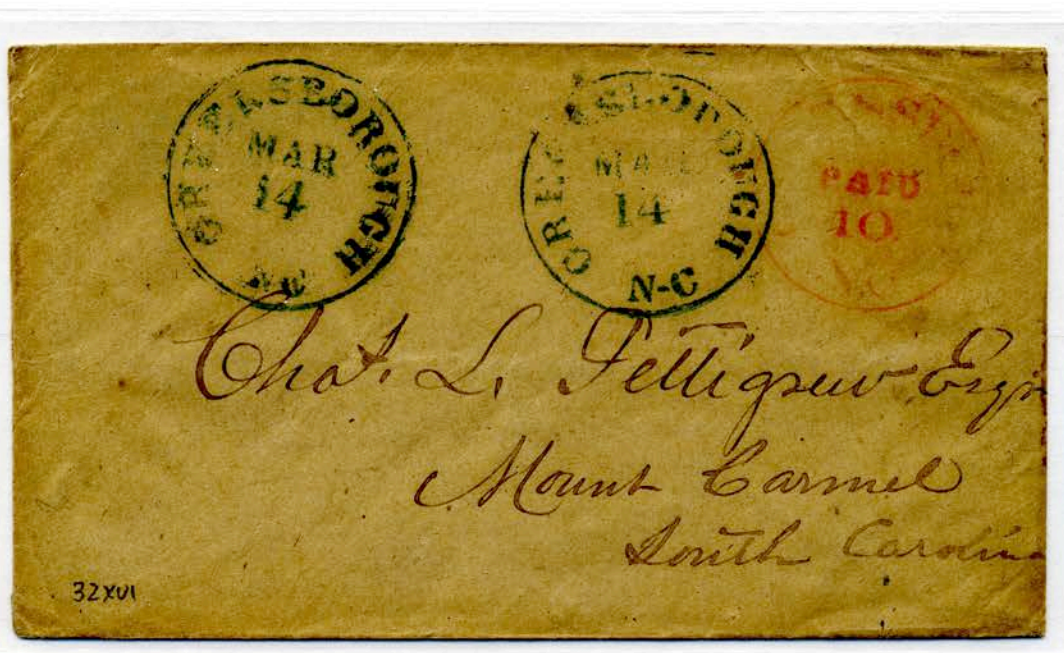 GREENSBOROUGH
MAR
14
N-C
GREENSBOROUGH
MAR
14
N-C
PAID
10
N.C
Chas. L. Pettigrew Esqr
Mount Carmel
South Carolina
32XU1